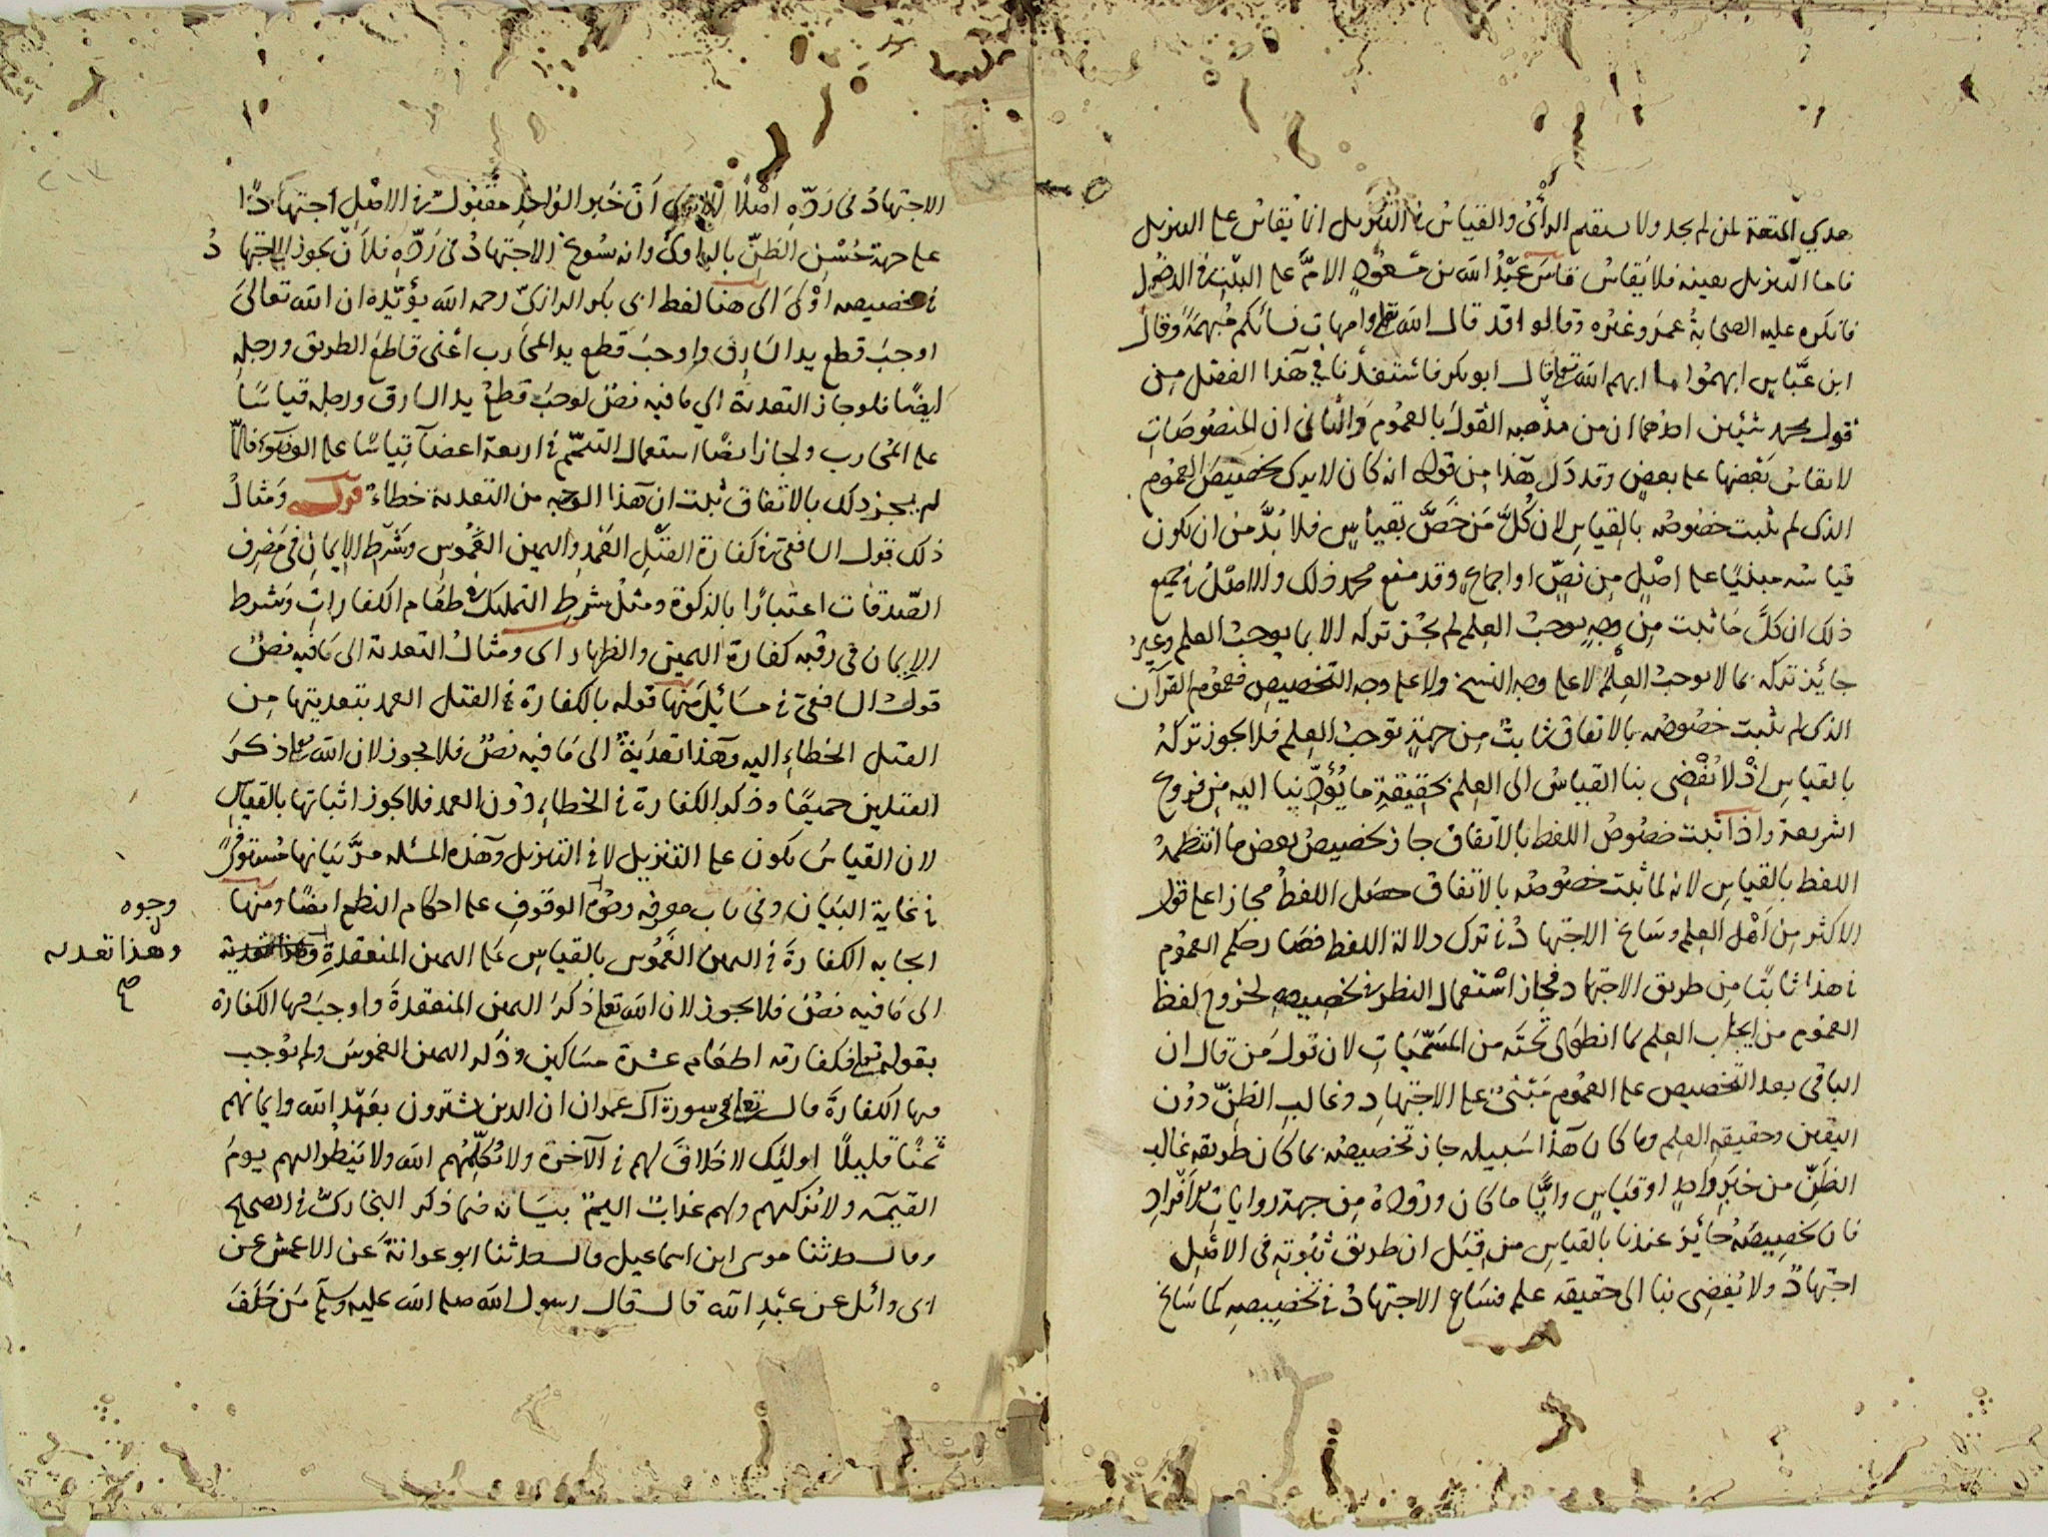 هدي المتعة لمن لم يجد ولا يستقيم الرأىُ والقياسُ في التنزيل انما يُقاسُ على التنزيل
فاما التنزيل بعينه فلا يُقاسُ قاسَ عَبْدُ الله بن مَسعُودٍ الامَّ على البنت في الدخول
فانكره عليه الصحابةُ عمرَ وغيره وقالوا قد قال الله تعالى وامهات نسائكم مُبهمَةً وقالَ
ابن عَبّاسٍ ابهمُوا ما ابهم الله تعالى قال ابو بكر فاستَفدْنا في هذا الفصل مِن
قول محمد شيئين احدهما ان من مذهبه القَولَ بالعمُوم وَالثانى ان المنصُوصَاتِ
لا يقاسُ بَعْضِها على بعضٍ وقد دَلَ هَذا مِن قوله انه كان لا يرى تخصيصَ العمُوم
الذى لم يثبت خصُوصُه بالقياسِ لان كُلَّ مَن خَصَّ بقياسٍ فلا بُدَّ من ان يكون
قياسُه مبنيًا على اصْلٍ مِن نصٍّ او اجماعٍ وقد منع محمد ذلك والاصْلُ في جميع
ذلك ان كلَّ مَا ثبت مِن وجهٍ يوجبُ العِلم لم يَجُز تركُه الا بما يوجبُ العلم وغيرُ
جايُز تركُه بما لا يوجبُ العِلمَ لا على وجه النسخ ولا على وجه التخصِيصِ فعمُوم القرآن
الذى لم يثبت خصُوصُه بالاتفاق ثابتٌ مِن جهةٍ توجبُ العِلم فلا يجوز تركُهُ
بالقياسِ اذْ لا يُفْضِى بنا القياسُ الى العِلم بحقيقةِ ما يُؤدِّينا اليه مِن فروع
الشريعة واذا ثبت خصُوصُ اللفظ بالاتفاق جاز تخصيصُ بعض ما انتظمهُ
اللفظ بالقياس لانه لما ثبت خصُوصُه بالاتفاق حصَل اللفظُ مجازا على قول
الاكثر مِن اَهْل العِلم وسَاغ الاجتهادُ في ترك دلالة اللفظ فصَار حكم العمُوم
في هذا ثابتًا مِن طريق الاجتهاد فجاز استعمال النظر في تخصِيصِه لخروج لفظ
العمُوم من ايجاب العِلم بما انطوى تحتَه من المسَمّيَاتِ لان قولَ مَن قال ان
الباقى بعد التخصِيص على العمُوم مَبْنىٌ على الاجتهادِ وغالبِ الظنِّ دوُن
اليقين وحقيقةِ العِلم وما كان هذا سَبيلُه جاز تخصيصُه بما كان طريقه غالب
الظَنِّ من خبَرِ واحِدٍ او قيَاسٍ واَيًّا ما كان وُرُودُهُ مِن جهة روَاياتِ الاَفْرَادِ
فان تخصِيصَهُ جائِزٌ عندنا بالقياسِ مِن قِبَل ان طريقَ ثبُوتِه فى الاصْلِ
اجتهادٌ ولا يُفضِى بنا الى حقيقة علمٍ فسَاغ الاجتهادُ في تخصِيصِه كما سَاغ
الاجتهادُ فى رَدِّهِ اصْلًا الا تَرى اَنَّ خَبَر الوَاحِدِ مقبُولٌ في الاصْلِ اجتهادًا
على جهة حُسْنِ الظنِّ بالراوى وانه يسُوغ الاجتهادُ فى رَدِّهِ فلاَن يجوز الاجتهادُ
في تخصيصه اوْلىَ الى هنا لفظ ابى بكر الرازىّ رحمه الله يؤيّدُه ان الله تعالىَ
اوجبَ قطع يد السَارِق واوجبَ قطع يد المحَارب اعْنى قاطعَ الطريق ورجلِهِ
ايضًا فلو جاز التعديةُ الى ما فيه نصٌ لوجبَ قطعُ يد السارق ورجله قياسًا
على المُحارب ولجاز ايضًا استعمال التيمّم في اربعة اعضآ قِياسًا على الوضوء فلمّا
لم يَجز ذلك بالاتفاق ثبت ان هذا الوجه من التعدية خطاءٌ قوله وَمثالُ
ذلك قول الشافعى في كفارة القتْلِ العَمْدِ واليمين الغَمُوسِ وشَرْطِ الاِيمانِ في مَصْرِف
الصّدقات اعتبارًا بالزكوة ومثلُ شرطِ التمليك في طعَام الكفارات وَشرط
الاِيمان فى رقبة كفارة اليَمينِ والظِهار اى ومثالُ التعدية الى مَا فيه نصٌ
قولُ الشافعى في مسَائِلَ مِنها قوله بالكفارة في القتل العمد بتعديتها مِن
القتل الخطاءِ اليه وهَذا تعدِيَةٌ الى مَا فيه نصٌ فلا يجوز لان الله تعالى ذكرَ
القتلين جميعًا وذكر الكفارة في الخطاءِ دُون العمد فلا يجوز اثباتها بالقياسِ
لان القياسُ يكون على التنزيل لا في التنزيل وَهذه المسئلة مرَّ بيَانها مُستوفىً
في غاية البَيَان وفى باب معرفة وجوه الوقُوفِ على احكام النظم ايضًا ومنها
ايجابه الكفارةَ في اليمين الغَمُوس بالقياسِ على اليمين المنعقدةِ وهذا تعدية
الى مَا فيه نصٌ فلا يجوز لان الله تعالى ذكرَ اليمين المنعقدةَ واوجبَ فيها الكفارة
بقوله تعالى فكفارته اطعَام عشرة مسَاكين وذكر اليمين الغموسَ ولم يوُجب
فيها الكفارةَ قال تعالى فى سورة آل عمران ان الذين يشترون بعَهْد الله وايمانهم
ثمنًا قليلًا اولئِك لا خَلاقَ لهم في الآخرة ولا يُكلِّمُهم الله ولا يَنظر اليهم يومَ
القيمة ولا يُزكيهم ولهم عذابٌ اليمٌ بيَانه فيما ذكر البخارىُّ في الصحيح
وقال حدثنا موسى ابن اسماعيل قال حدثنا ابو عوانةَ عَن الاعمش عن
ابى وائل عن عبْدِ الله قال قال رسول الله صلى الله عليه وسلم مَن حَلَفَ
وجوه
وهذا تعدية
صح